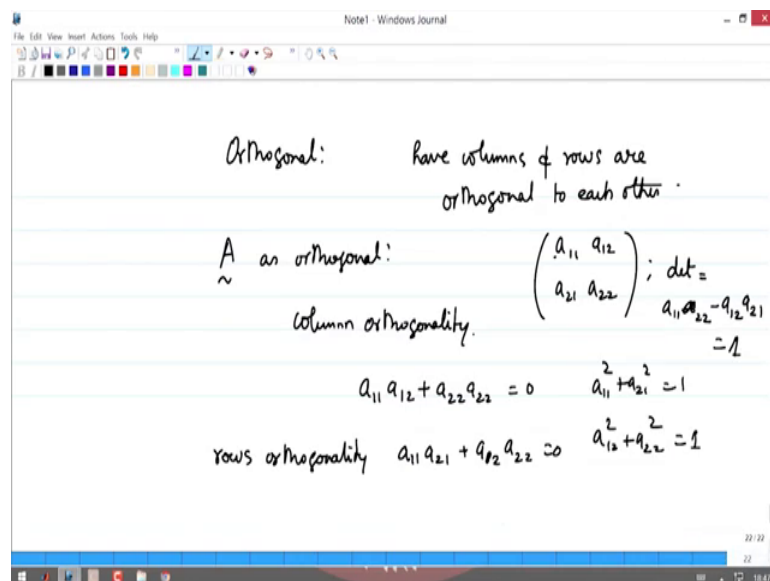 Note1 - Windows Journal
File Edit View Insert Actions Tools Help
B I
Orthogonal: have columns & rows are
orthogonal to each other.
A an orthogonal: (a11 a12 a21 a22) ; det =
a11 a22 - a12 a21
= 1
column orthogonality.
a11 a12 + a22 a22 = 0 a11^2 + a21^2 = 1
rows orthogonality a11 a21 + a12 a22 = 0 a12^2 + a22^2 = 1
22/22
22